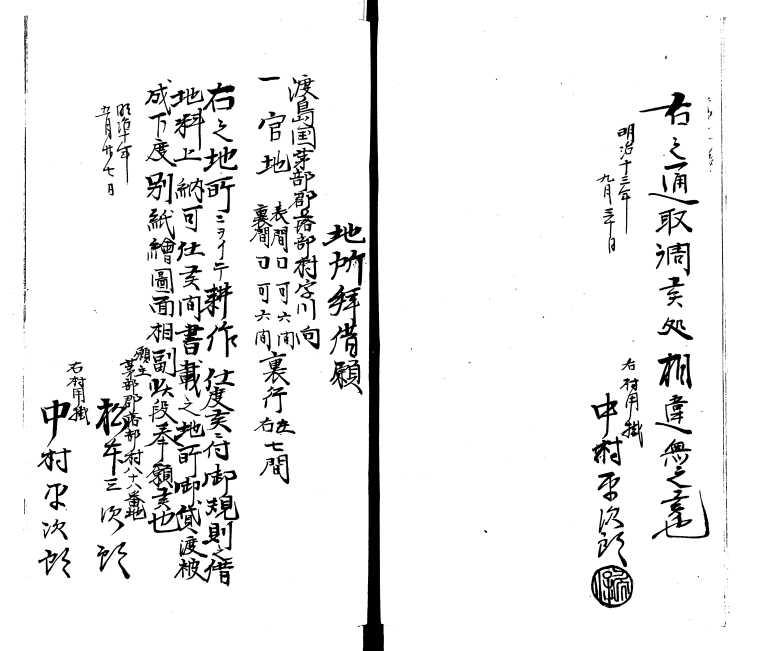 右之通取調候処相違無之候也
明治十三年
九月三日
右村用掛
中村平次郎
地所拝借願
渡島国茅部郡落部村字川向
一官地 表間口可六間 裏間口可六間 裏行左右七間
右之地所ニヲイテ耕作仕度候ニ付御規則之借
地料上納可仕候間書載之地所御貸渡被
成下度別紙繪圖面相副此段奉願候也
明治十年
五月廿七日
願主
茅部郡落部村八十八番地
松本三次郎
右村用掛
中村平次郎